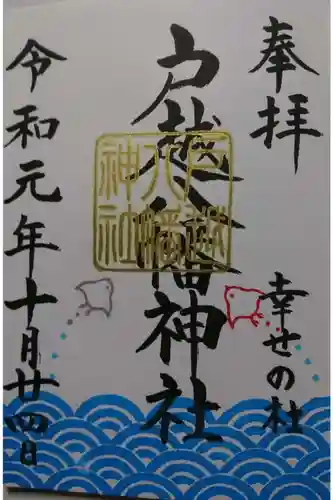 奉拝
幸せの社
戸越八幡神社
戸越
八幡
神社
令和元年十月廿四日